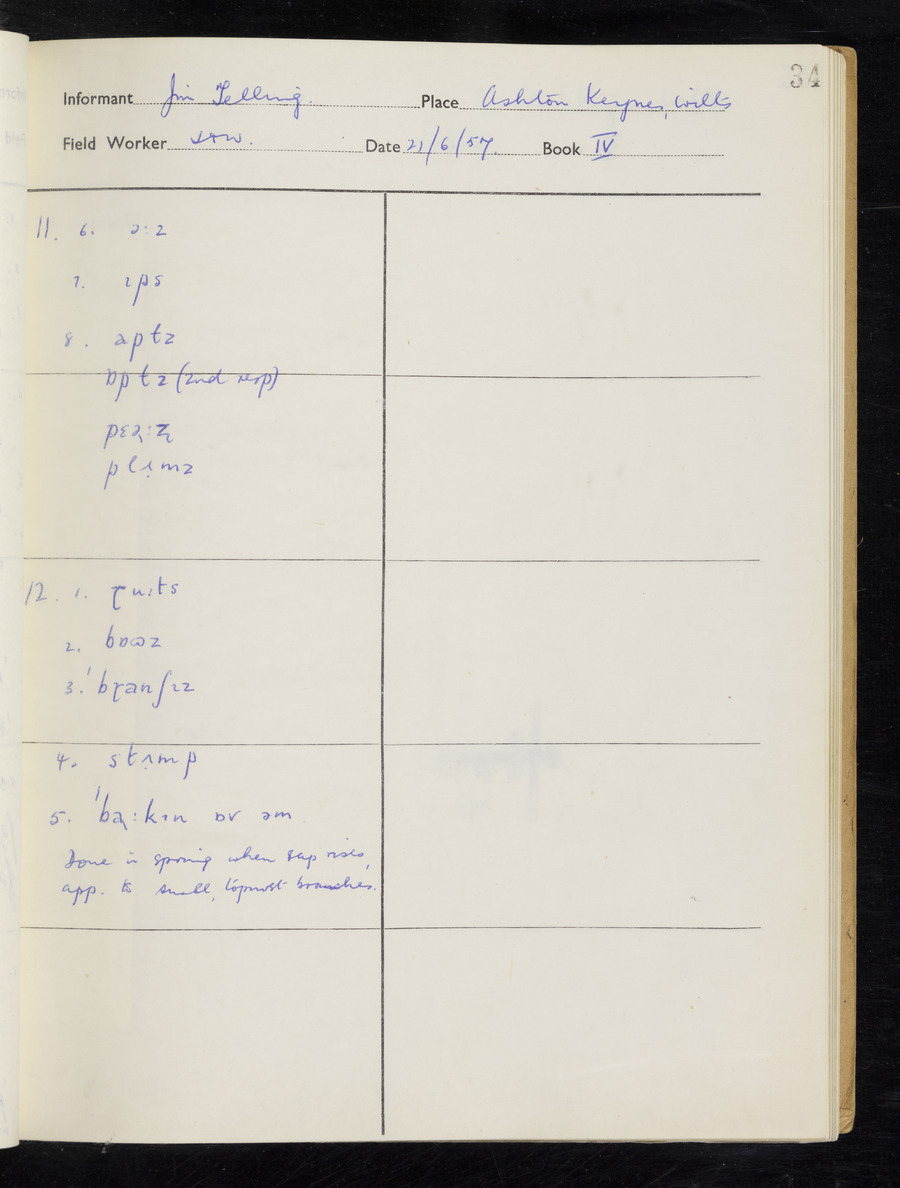 34
Informant Jim Telling. Place Ashton Keynes, Wilts
Field Worker Date 21/6/57. Book IV
11. 6. ə:z
7. ɪps
8. aptz
ɒptz (2nd resp)
pɛə̢:z̢
plʌ̣mz
12. 1. ɽu:ts
2. bɒʊz
3. 'bɽanʃɪz
4. stʌ̣mp
5. 'ba̢:kɪn ɒv əm
Done in spring when sap rises,
app. to small, topmost branches.